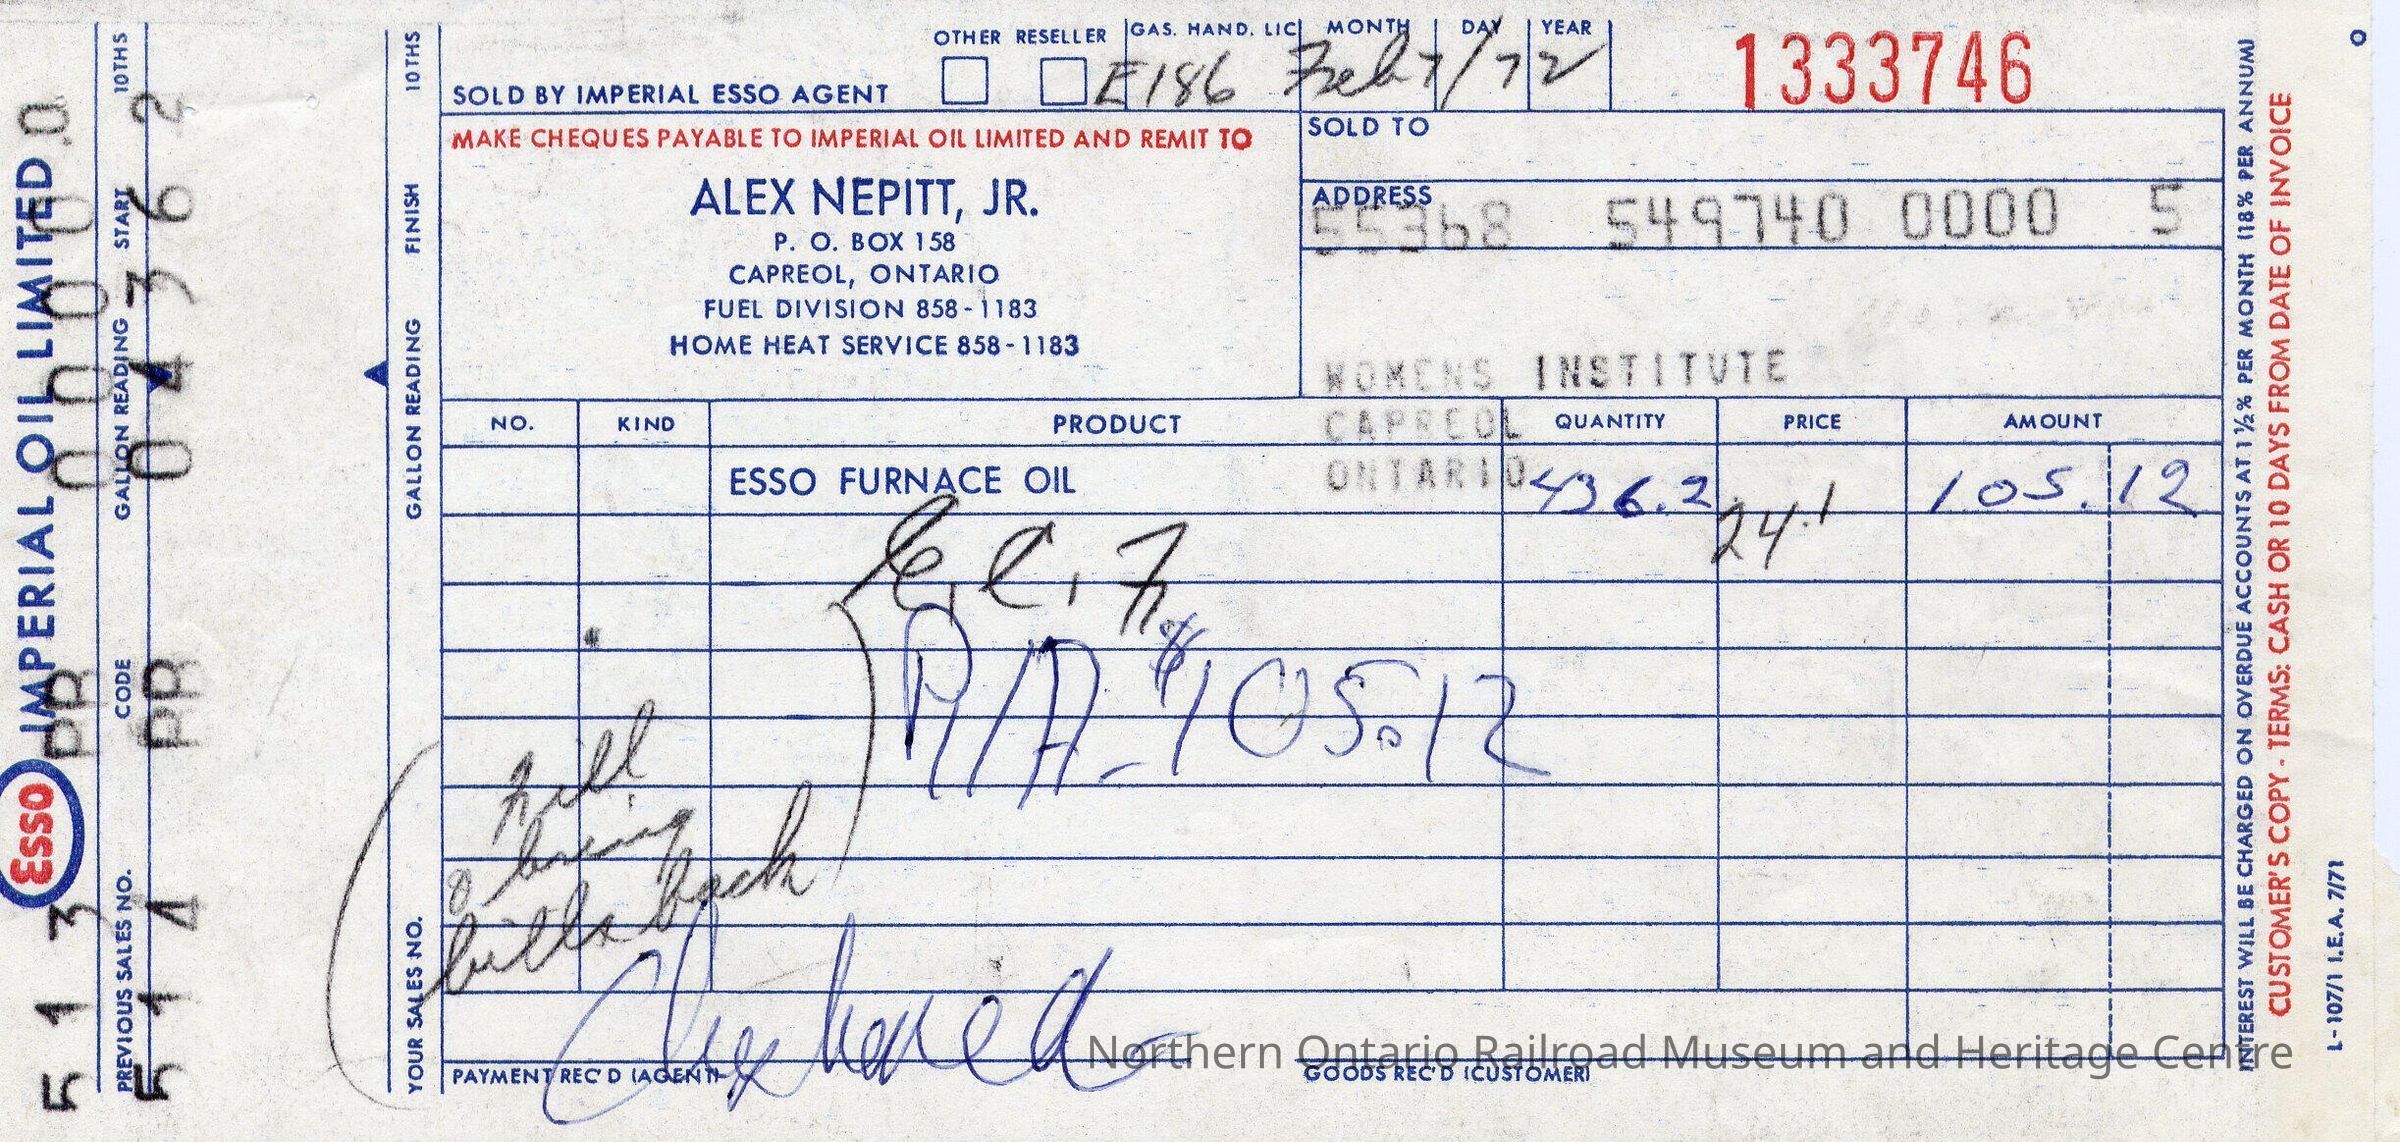 OTHER RESELLER GAS. HAND. LIC MONTH DAY YEAR
SOLD BY IMPERIAL ESSO AGENT E186 Feb 7/72 1333746
MAKE CHEQUES PAYABLE TO IMPERIAL OIL LIMITED AND REMIT TO
ALEX NEPITT, JR.
P. O. BOX 158
CAPREOL, ONTARIO
FUEL DIVISION 858-1183
HOME HEAT SERVICE 858-1183
SOLD TO
ADDRESS
55368 549740 0000 5
WOMENS INSTITUTE
CAPREOL
ONTARIO
NO. KIND PRODUCT QUANTITY PRICE AMOUNT
ESSO FURNACE OIL 436.2 24.1 105.12
P/A - $105.12
fill
& bring
bills back
PAYMENT REC'D (AGENT) GOODS REC'D (CUSTOMER)
ESSO IMPERIAL OIL LIMITED
513 PR 0000.0
PREVIOUS SALES NO. CODE GALLON READING START 10THS
514 PR 04362
YOUR SALES NO. GALLON READING FINISH 10THS
INTEREST WILL BE CHARGED ON OVERDUE ACCOUNTS AT 1½% PER MONTH (18% PER ANNUM)
CUSTOMER'S COPY - TERMS: CASH OR 10 DAYS FROM DATE OF INVOICE
L-107/1 I.E.A. 7/71
Northern Ontario Railroad Museum and Heritage Centre